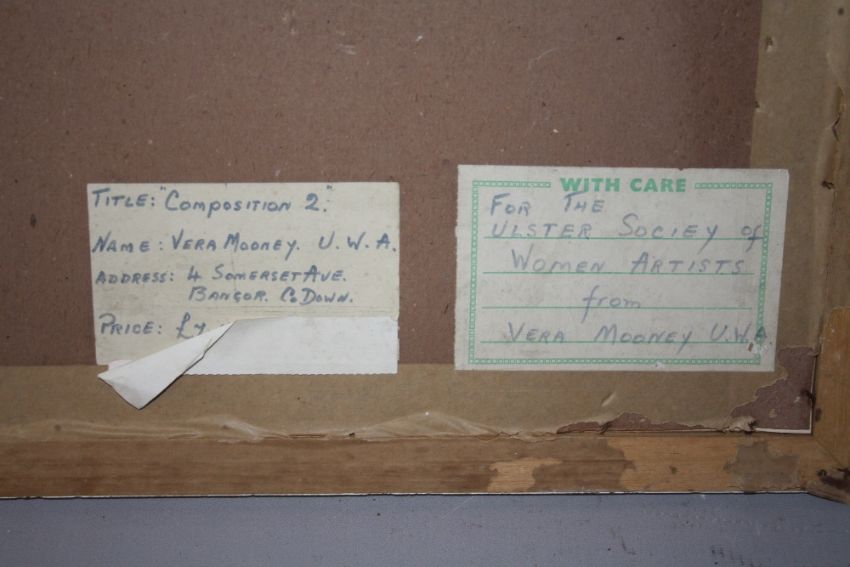 TITLE: "COMPOSITION 2."
NAME: VERA MOONEY. U.W.A.
ADDRESS: 4 SOMERSET AVE.
BANGOR. Co DOWN.
PRICE: £
WITH CARE
FOR THE
ULSTER SOCIEY of
WOMEN ARTISTS
from
VERA MOONEY U.W.A.